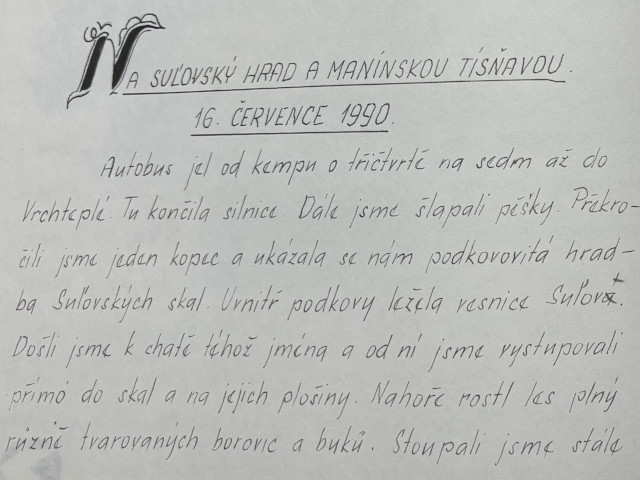 NA SUĽOVSKÝ HRAD A MANÍNSKOU TÍSŇAVOU.
16. ČERVENCE 1990.
Autobus jel od kempu o třičtvrtě na sedm až do
Vrchteplé. Tu končila silnice. Dále jsme šlapali pěšky. Překro-
čili jsme jeden kopec a ukázala se nám podkovovitá hrad-
ba Suľovských skal. Uvnitř podkovy ležela vesnice Suľov.
Došli jsme k chatě téhož jména a od ní jsme vystupovali
přímo do skal a na jejich plošiny. Nahoře rostl les plný
různě tvarovaných borovic a buků. Stoupali jsme stále